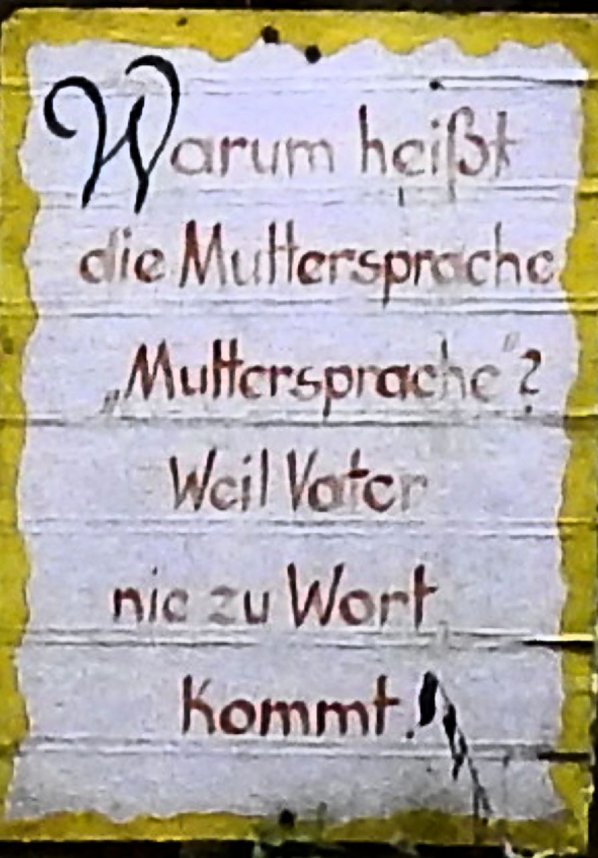 Warum heißt
die Muttersprache
„Muttersprache"?
Weil Vater
nie zu Wort
kommt.